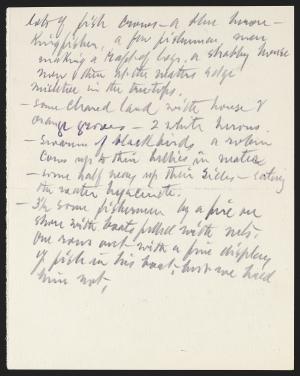 lots of fish crows - a blue heron -
Kingfisher, a few fishermen, men
making a raft of logs, a shabby house
now & then at the waters edge
mistletoe in the treetops.
- Some cleared land with house &
orange groves - 2 white herons.
- Swarms of blackbirds, a robin
Cows up to their bellies in water
- some half way up their sides - eating
the water hyacinths.
- 3h some fishermen by a fire on
shore with boats filled with nets.
One rows out with a fine display
of fish in his boat, but we heed
him not,